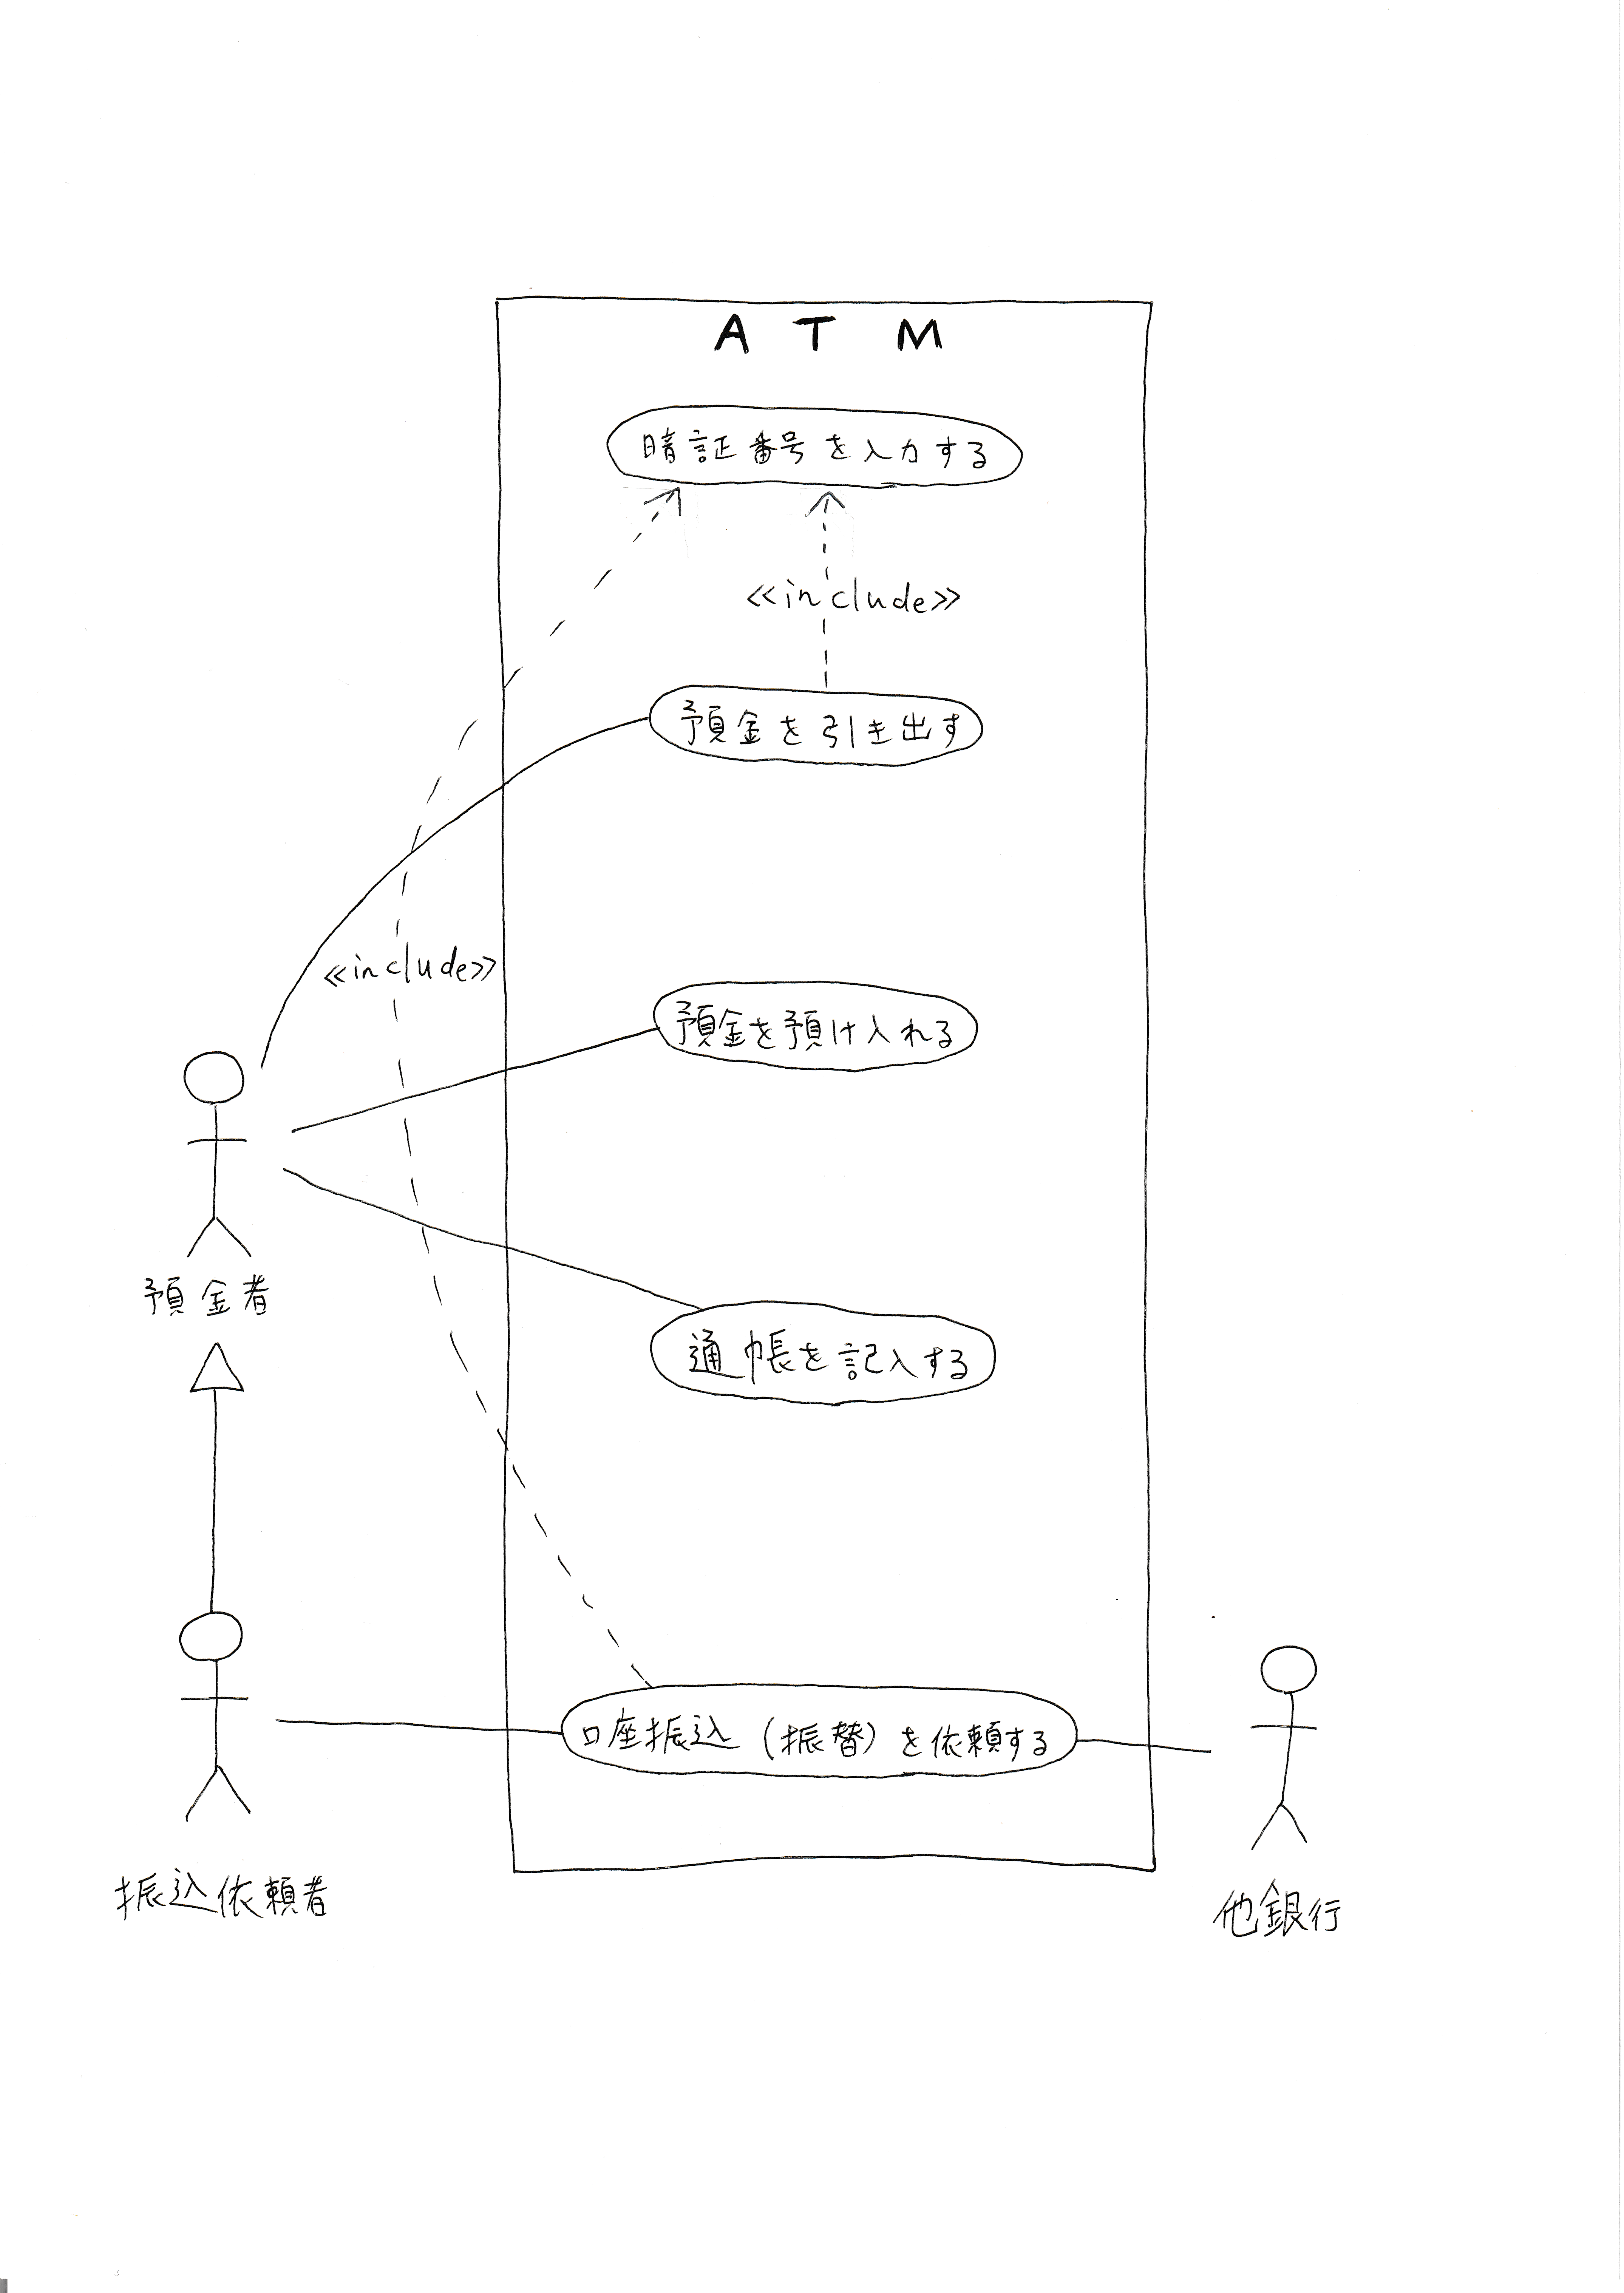 ATM
暗証番号を入力する
<<include>>
預金を引き出す
<<include>>
預金を預け入れる
預金者
通帳を記入する
口座振込(振替)を依頼する
振込依頼者
他銀行